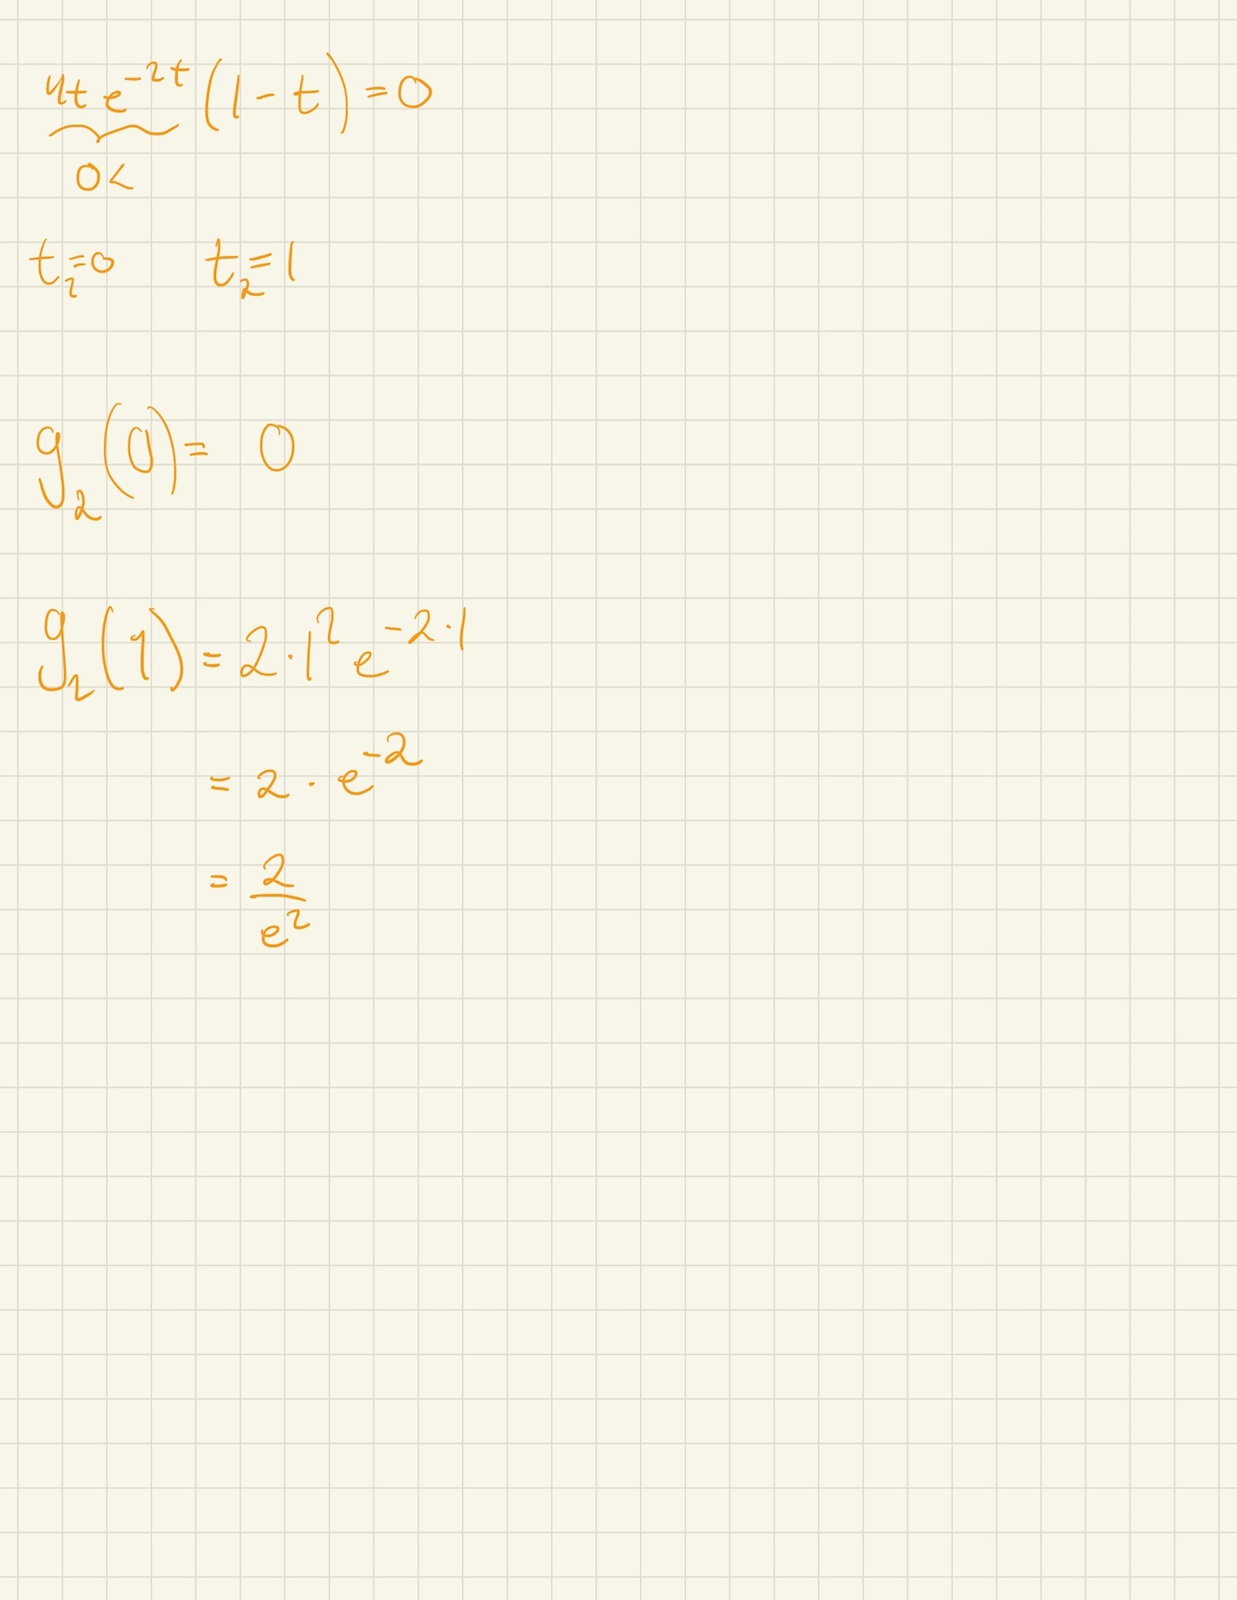 4t e^{-2t} (1-t) = 0
0<
t_1=0 t_2=1
g_2(0)= 0
g_2(1) = 2·1^2 e^{-2·1}
= 2 · e^{-2}
= 2/e^2